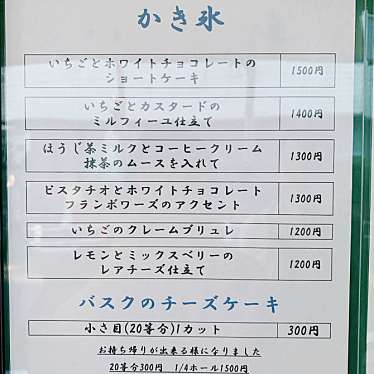 かき氷
いちごとホワイトチョコレートの
ショートケーキ
1500円
いちごとカスタードの
ミルフィーユ仕立て
1400円
ほうじ茶ミルクとコーヒークリーム
抹茶のムースを入れて
1300円
ピスタチオとホワイトチョコレート
フランボワーズのアクセント
1300円
いちごのクレームブリュレ
1200円
レモンとミックスベリーの
レアチーズ仕立て
1200円
バスクのチーズケーキ
小さ目(20等分)1カット
300円
お持ち帰りが出来る様になりました
20等分300円 1/4ホール1500円